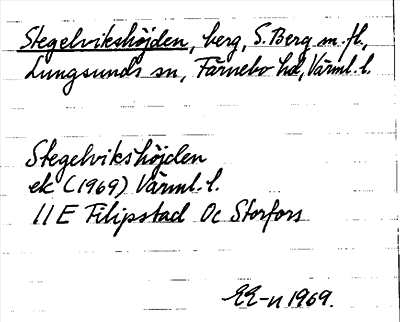 Stegelvikshöjden, berg, S. Berg m. fl.,
Lungsunds sn, Färnebo hd, Värml. l.
Stegelvikshöjden
ek (1969) Värml. l.
11 E Filipstad 0c Storfors
EE-n 1969.